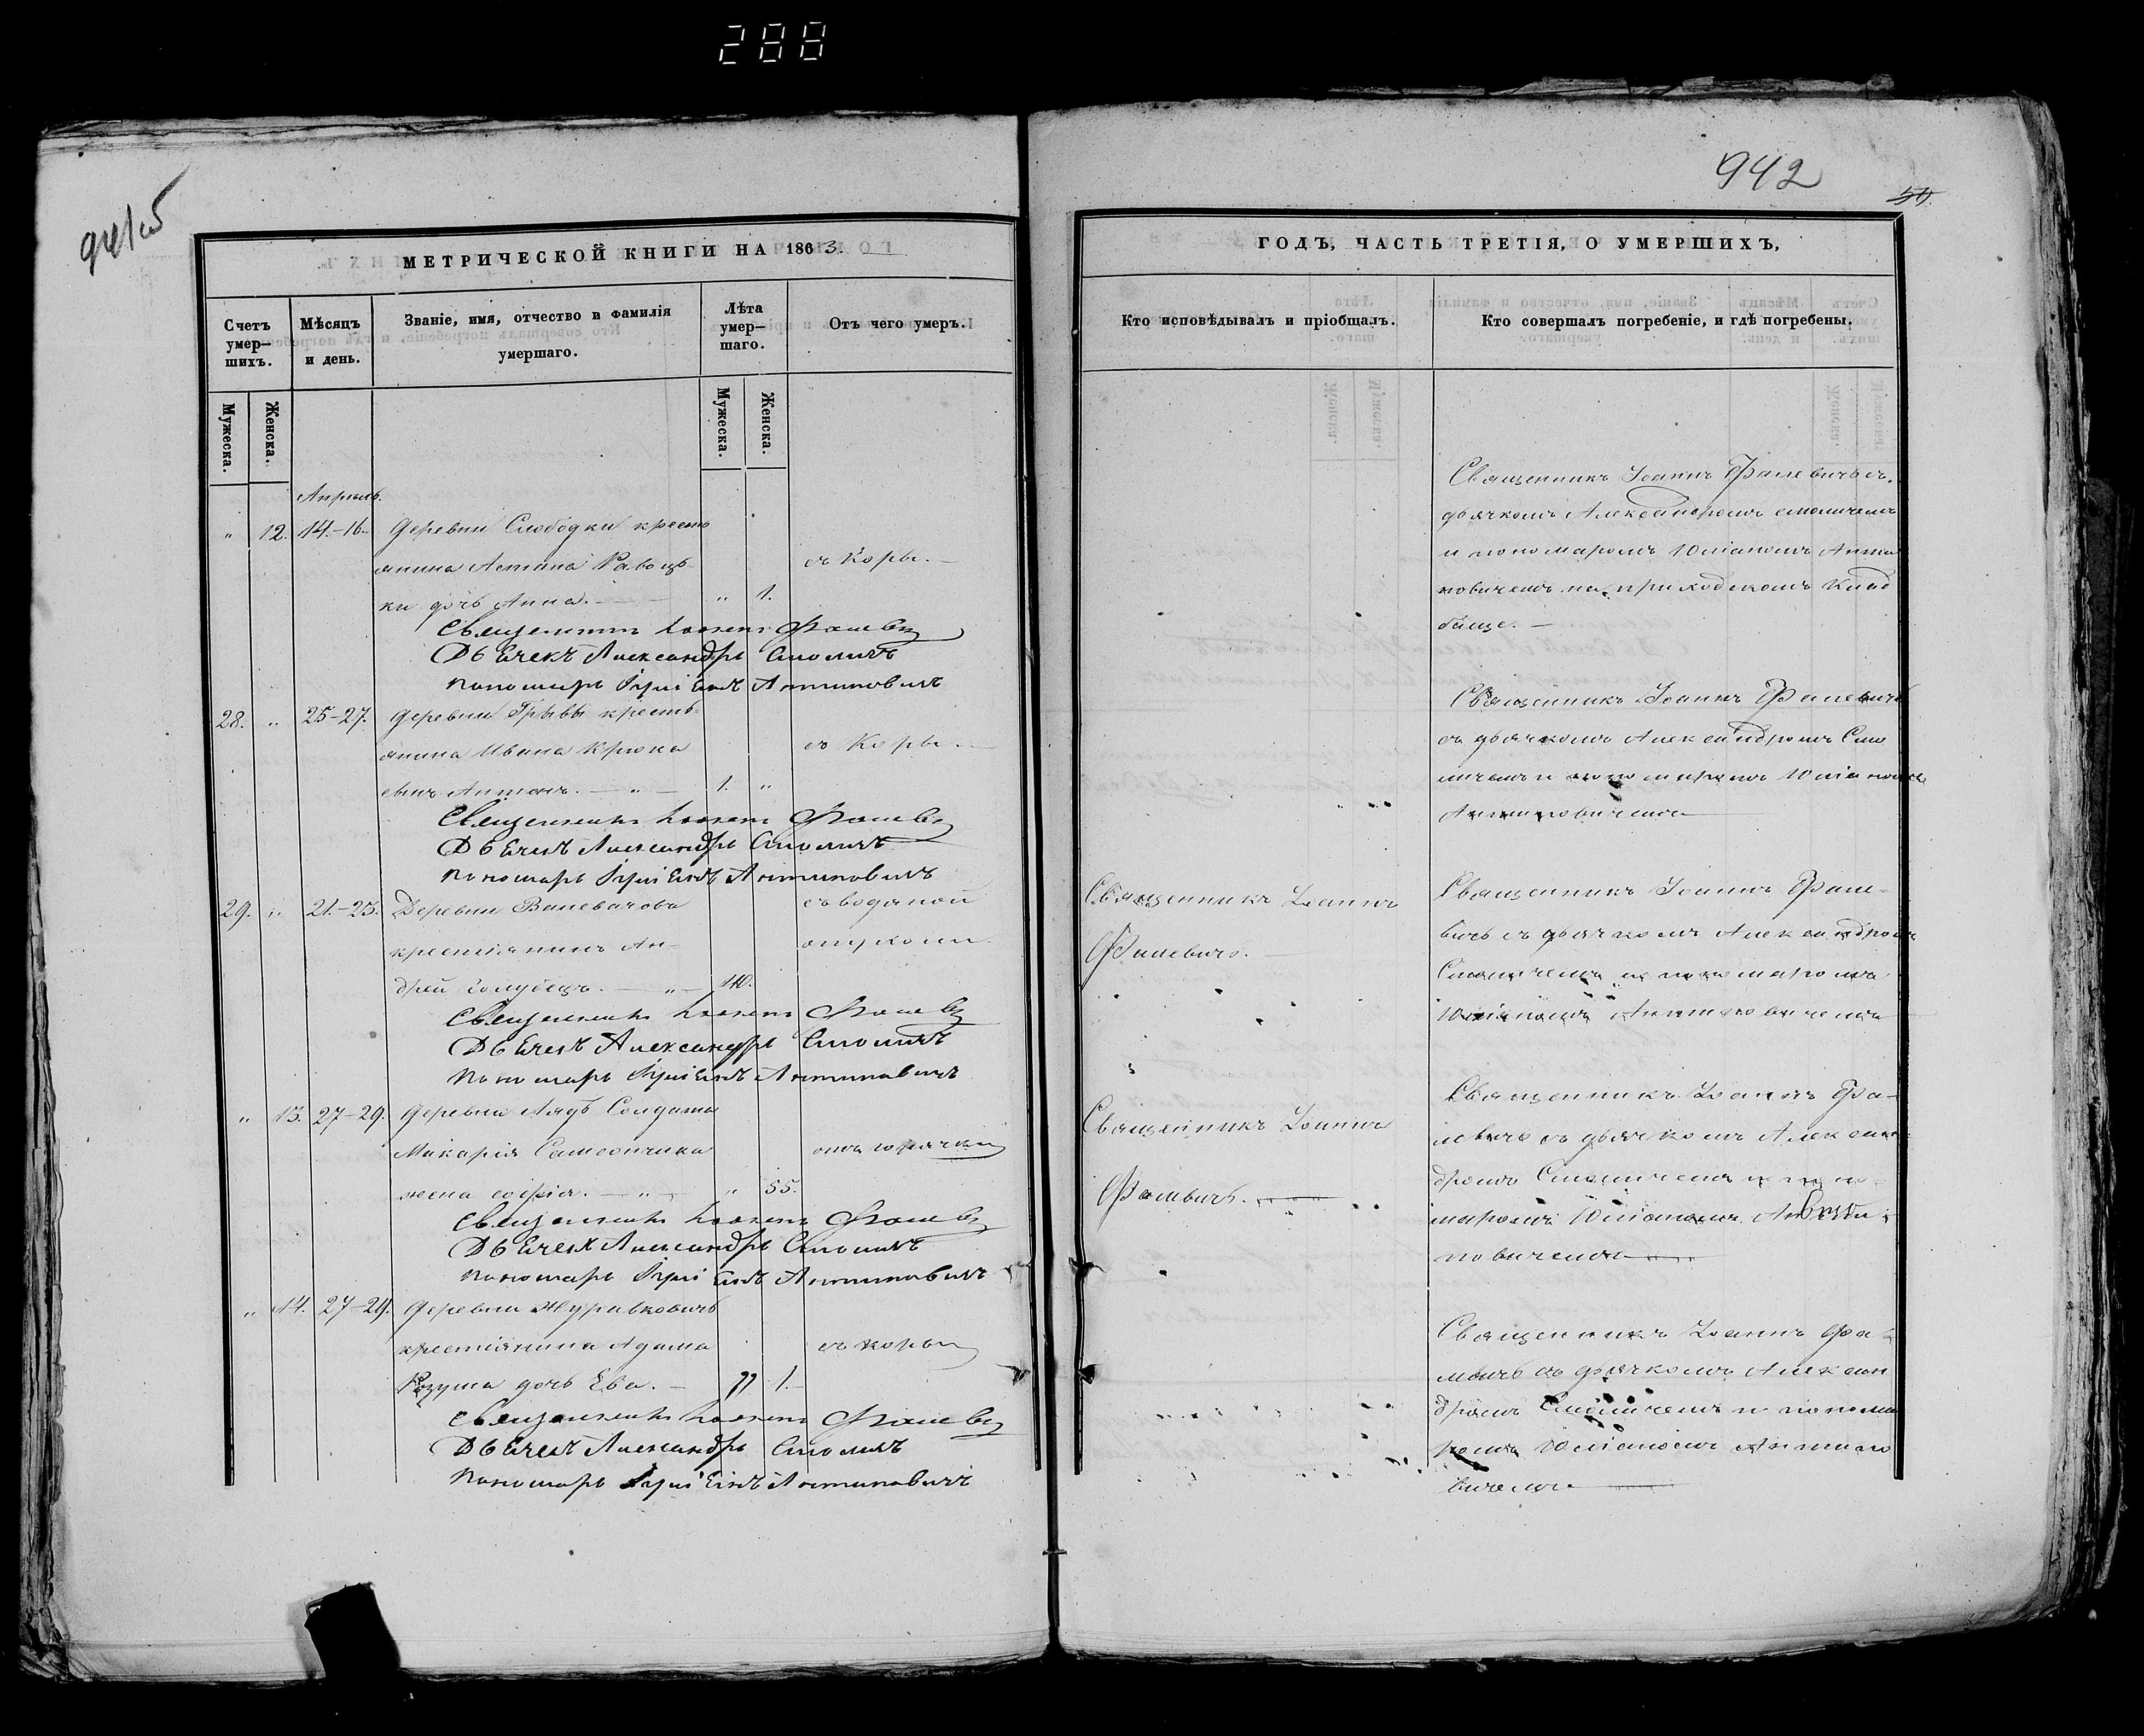 288
942
54
МЕТРИЧЕСКОЙ КНИГИ НА 1863.
Счетъ умер-
шихъ.
Мѣсяцъ
и день.
Званіе, имя, отчество и фамилія
умершаго.
Лѣта
умер-
шаго.
Отъ чего умеръ.
Мужеска.
Женска.
Мужеска.
Женска.
Апрѣль.
" 12. 14.-16. Деревни Слободки кресть
янина
съ Коры.
ки дочь Анна. " 1.
Священникъ Іоаннъ Фалевич
Дьячекъ Александръ Смоличъ
Пономарь Іуліанъ Антиповичъ
28. " 25-27. Деревни Гривы кресть-
янина Ивана Крюко
съ Коры.
вичъ Антонъ. " 1. "
Священникъ Іоаннъ Фалевич
Дьячекъ Александръ Смоличъ
Пономарь Іуліанъ Антиповичъ
29. " 21.-23. Деревни
съ водяной
крестіянинъ Ан-
опухоли.
дрей Голубецъ. " 40.
Священникъ Іоаннъ Фалевич
Дьячекъ Александръ Смоличъ
Пономарь Іуліанъ Антиповичъ
" 13. 27-29. Деревни Лядъ Солдата
Макарія
отъ горячки
жена Софія. " " 55.
Священникъ Іоаннъ Фалевич
Дьячекъ Александръ Смоличъ
Пономарь Іуліанъ Антиповичъ
" 14. 27-29. Деревни
крестіянина Адама
съ коры
дочь Ева. " 1.
Священникъ Іоаннъ Фалевич
Дьячекъ Александръ Смоличъ
Пономарь Іуліанъ Антиповичъ
ГОДЪ, ЧАСТЬ ТРЕТІЯ, О УМЕРШИХЪ,
Кто исповѣдывалъ и пріобщалъ.
Кто совершалъ погребеніе, и гдѣ погребены.
Священникъ Іоаннъ Фалевичъ съ
дьячкомъ Александромъ Смоличемъ
и пономаромъ Юліаномъ Анти
повичемъ на приходскомъ клад
бище.
Священникъ Іоаннъ Фалевичъ
съ дьячкомъ Александромъ Смо
личемъ и пономаремъ Юліаномъ
Антиповичемъ
Священникъ Іоаннъ
Фалевичъ.
Священникъ Іоаннъ Фале-
вичъ съ дьячкомъ Александромъ
Смоличемъ и пономаромъ
Юліаномъ Антиповичемъ
Священникъ Іоаннъ
Фалевичъ.
Священникъ Іоаннъ Фа-
левичъ съ дьячкомъ Алексан-
дромъ Смоличемъ и поно-
маромъ Юліаномъ Анти-
повичемъ
Священникъ Іоаннъ Фа-
левичъ съ дьячкомъ Алексан
дромъ Смоличемъ и понома
ромъ Юліаномъ Антипо
вичемъ.